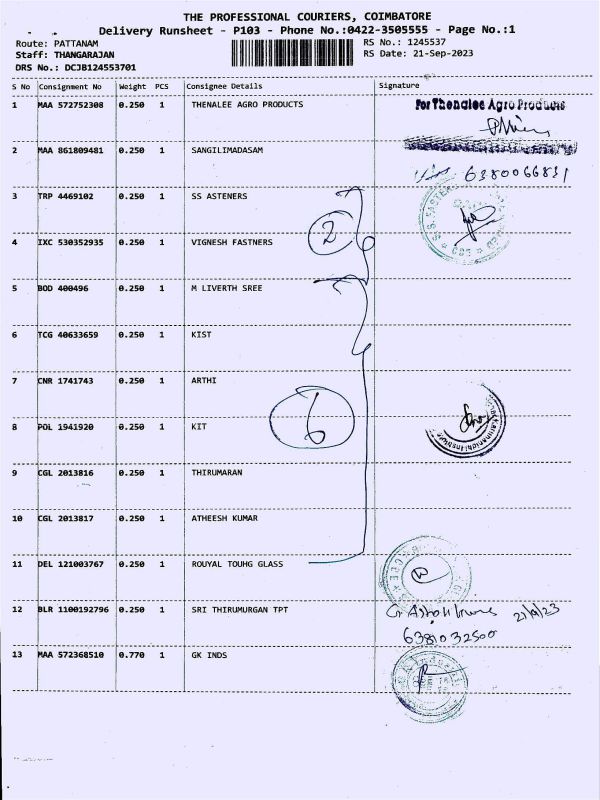 THE PROFESSIONAL COURIERS, COIMBATORE
Delivery Runsheet - P103 - Phone No.:0422-3505555 - Page No.:1
Route: PATTANAM RS No.: 1245537
Staff: THANGARAJAN RS Date: 21-Sep-2023
DRS No.: DCJB124553701
S No Consignment No Weight PCS Consignee Details Signature
1 MAA 572752308 0.250 1 THENALEE AGRO PRODUCTS For Thenalee Agro Products
2 MAA 861809481 0.250 1 SANGILIMADASAM
6380066831
3 TRP 4469102 0.250 1 SS ASTENERS
2
4 IXC 530352935 0.250 1 VIGNESH FASTNERS
5 BOD 400496 0.250 1 M LIVERTH SREE
6 TCG 40633659 0.250 1 KIST
7 CNR 1741743 0.250 1 ARTHI
6
8 POL 1941920 0.250 1 KIT
9 CGL 2013816 0.250 1 THIRUMARAN
10 CGL 2013817 0.250 1 ATHEESH KUMAR
11 DEL 121003767 0.250 1 ROUYAL TOUHG GLASS
12 BLR 1100192796 0.250 1 SRI THIRUMURGAN TPT 21/9/23
6381032500
13 MAA 572368510 0.770 1 GK INDS